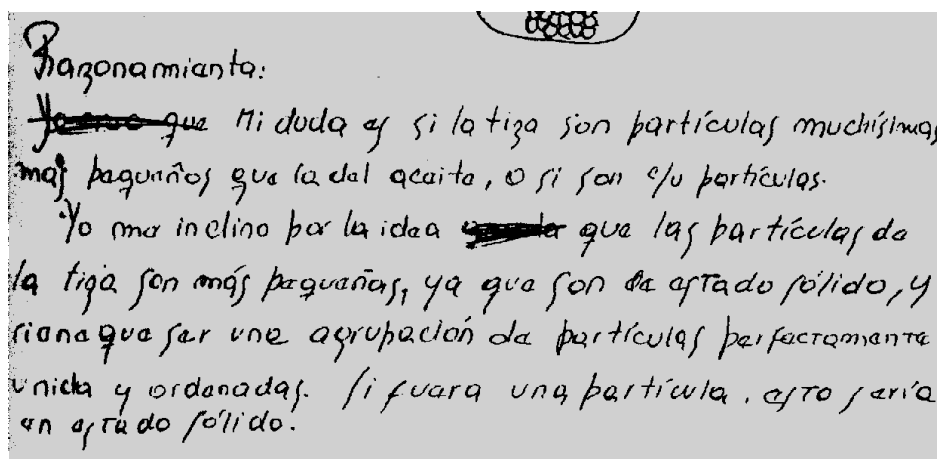 Razonamiento:
Yo creo que Mi duda es si la tiza son partículas muchísimas
más pequeños que la del aceite, o si son c/u partículas.
Yo me inclino por la idea que las partículas de
la tiza son más pequeñas, ya que son de estado sólido, y
tiene que ser una agrupación de partículas perfectamente
unida y ordenadas. Si fuera una partícula, esto sería
en estado sólido.